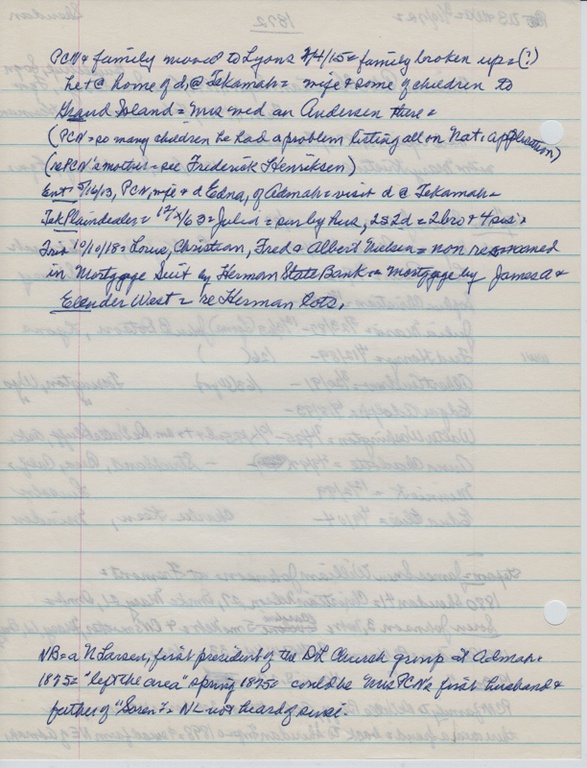 1872
PCN & family moved to Lyons 2/4/15 = family broken up = (?)
he + @ home of d @ Tekamah = wife & some of children to
Grand Island = Mrs wed an Andersen there =
(PCN = so many children he had a problem listing all on Nat. application)
(re PCN's mother = see Frederick Henriksen)
Ent = 5/16/13, PCN, wife & d Edna, of Admah = visit d @ Tekamah =
Tek Plaindealer = 12/x/63 = Julia = surv by hus, 2s 2d = 2 bro & 4 sis =
Trib 10/10/18 = Louis, Christian, Fred & Albert Nielsen = non res named
in Mortgage Suit by Herman State Bank on mortgage by James A &
Elender West = re Herman Lots.
NB = a N Larsen, first president of the DL Church group at Admah =
1875 = "left the area" spring 1875 = could be Mrs PCN's first husband &
father of "Soren" = NL not heard of since.